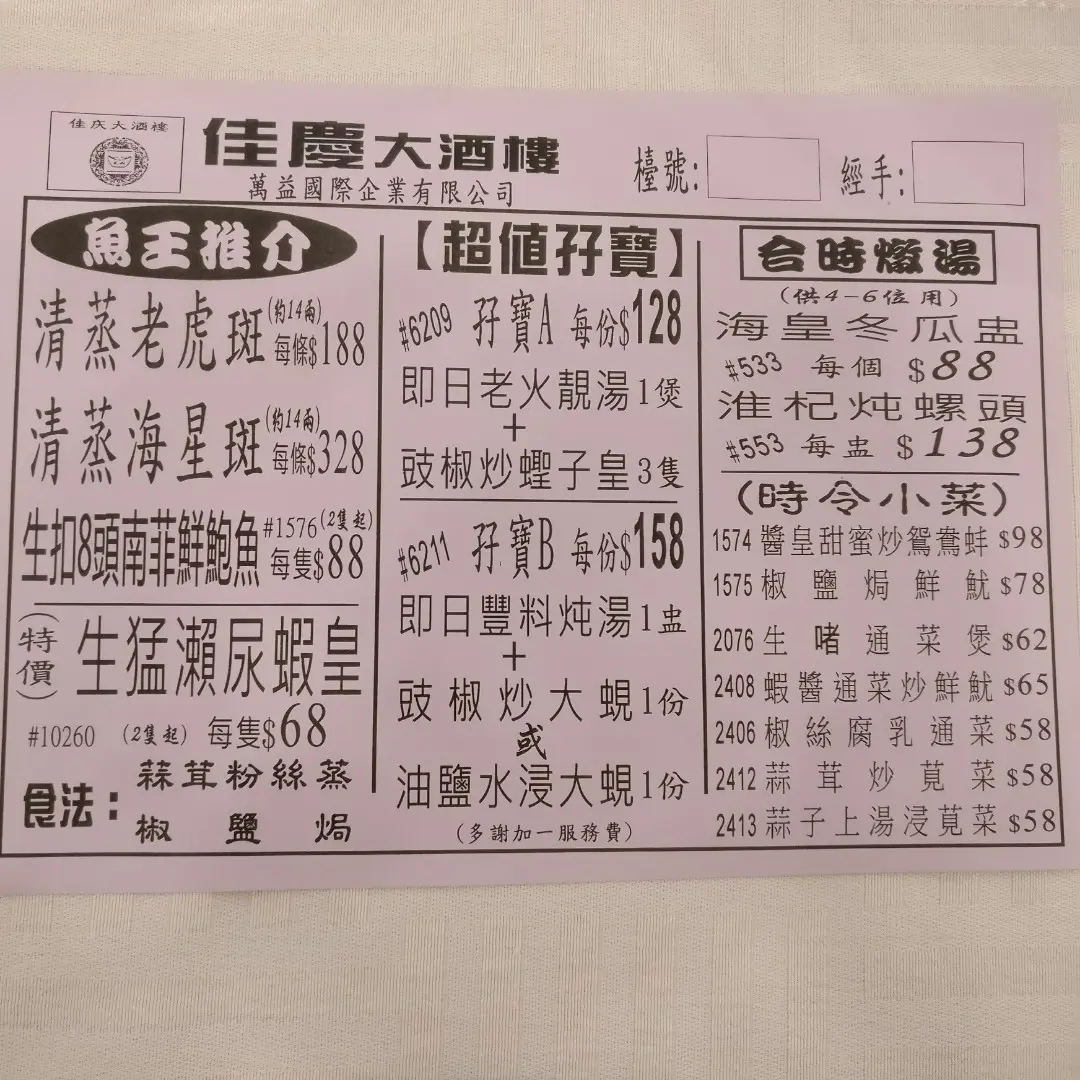 佳庆大酒樓
佳慶大酒樓
萬益國際企業有限公司
檯號:
經手:
魚王推介
清蒸老虎斑(約14兩)每條$188
清蒸海星斑(約14兩)每條$328
生扣8頭南菲鮮鮑魚#1576(2隻起)每隻$88
(特價)生猛瀨尿蝦皇
#10260 (2隻起) 每隻$68
食法:蒜茸粉絲蒸
椒鹽焗
【超值孖寶】
#6209 孖寶A 每份$128
即日老火靚湯1煲
+
豉椒炒蟶子皇3隻
#6211 孖寶B 每份$158
即日豐料炖湯1盅
+
豉椒炒大蜆1份
或
油鹽水浸大蜆1份
(多謝加一服務費)
合時燉湯
(供4-6位用)
海皇冬瓜盅
#533 每個 $88
淮杞炖螺頭
#553 每盅 $138
(時令小菜)
1574 醬皇甜蜜炒鴛鴦蚌 $98
1575 椒鹽焗鮮魷 $78
2076 生啫通菜煲 $62
2408 蝦醬通菜炒鮮魷 $65
2406 椒絲腐乳通菜 $58
2412 蒜茸炒莧菜 $58
2413 蒜子上湯浸莧菜 $58